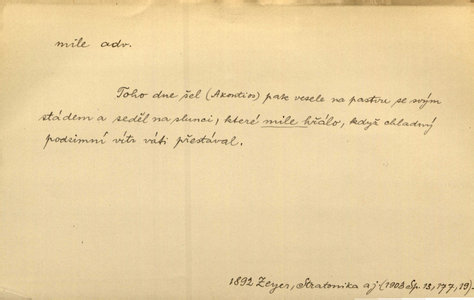 mile adv.
Toho dne šel (Axontios) pak vesele na pastvu se svým
stádem a seděl na slunci, které mile hřálo, když chladný
podzimní vítr váti přestával.
1892 Zeyer, Stratonika aj (1903 Sp. 13, 177, 19).